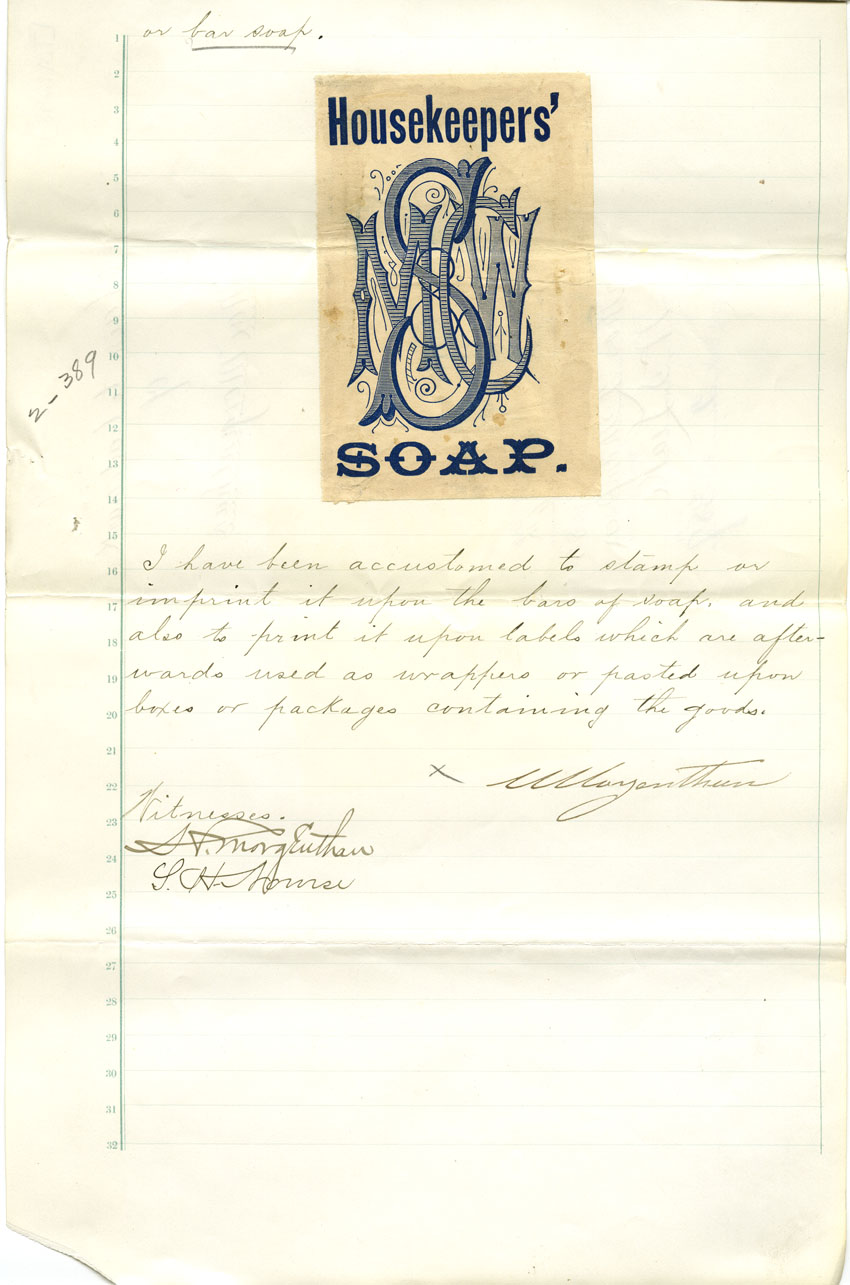 or bar soap.
Housekeepers'
SOAP.
2-389
I have been accustomed to stamp or
imprint it upon the bars of soap. and
also to print it upon labels which are after-
wards used as wrappers or pasted upon
boxes or packages containing the goods.
x Morgenthau
Witnesses.
Morgenthau
S. H.
1
2
3
4
5
6
7
8
9
10
11
12
13
14
15
16
17
18
19
20
21
22
23
24
25
26
27
28
29
30
31
32